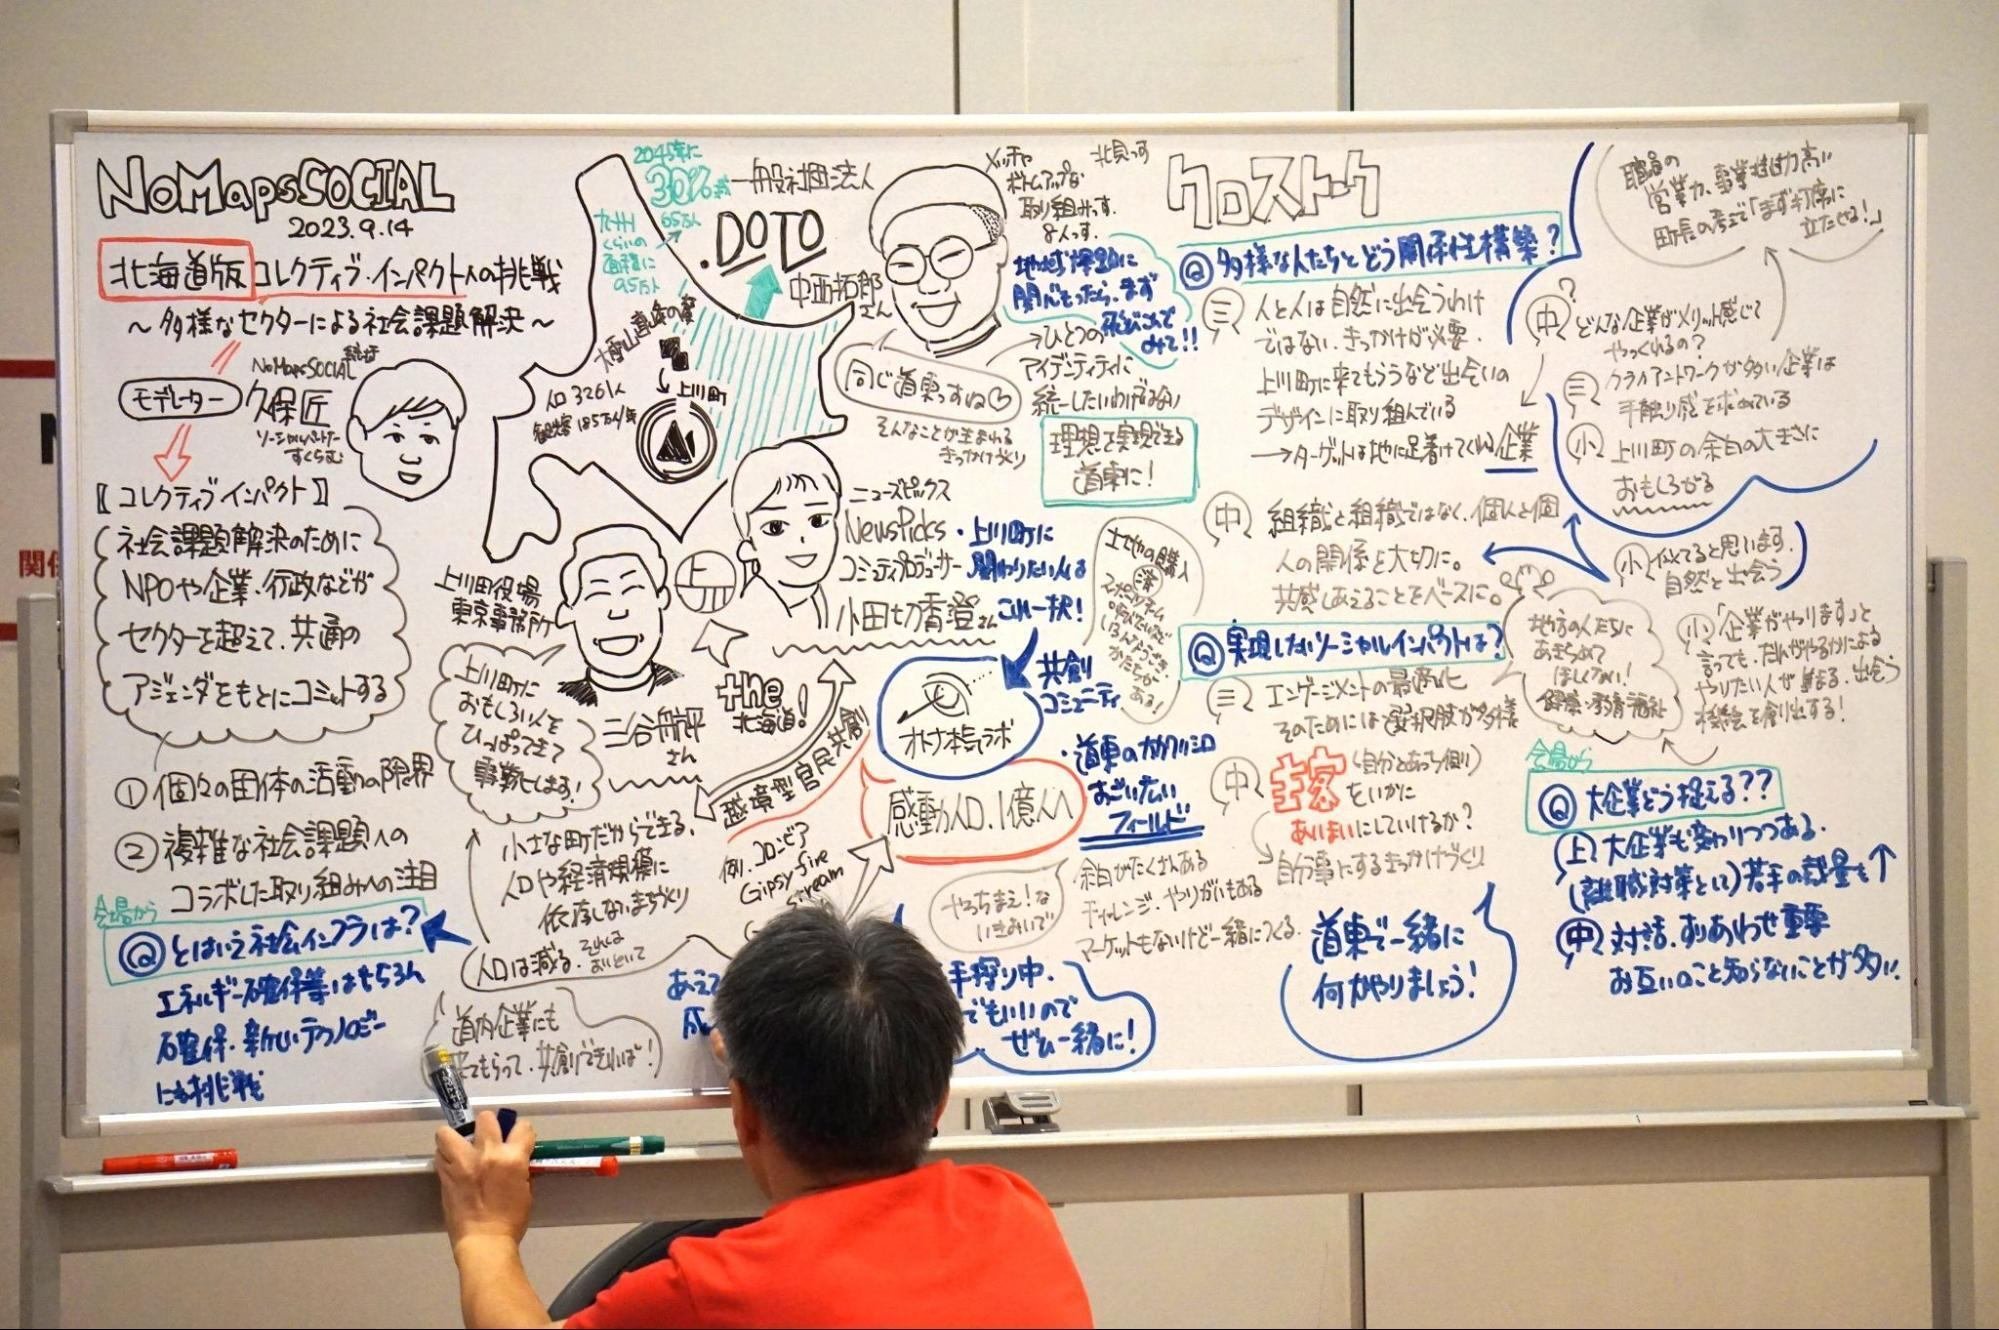 NoMapsSOCIAL
2023.9.14
北海道版 コレクティブ・インパクトへの挑戦
〜多様なセクターによる社会課題解決〜
モデレーター
NoMapsSOCIAL
久保匠
ソーシャルパートナー
すくらむ
【コレクティブ・インパクト】
社会課題解決のために
NPOや企業・行政などが
セクターを超えて、共通の
アジェンダをもとにコミットする
① 個々の団体の活動の限界
② 複雑な社会課題への
コラボした取り組みへの注目
会場から
Q とはいう社会インフラは?
エネルギー確保等はもちろん
確保・新しいテクノロジー
にも挑戦
2045年に
30%減
65万人
九州
くらいの
面積に
95万人
一般社団法人
.DOTO
中西拓郎
さん
メッチャ
ボトムアップな
取り組みっす。
8人っす。
北見っす
地域課題に
関心もったら、まず
飛びこんで
みて!!
同じ道東っすね
そんなことが生まれる
きっかけづくり
→ひとつの
アイデンティティに
統一したいわけではない
理想を実現できる
道東に!
大雪山
上川町
人口3261人
観光客185万人/年
上川町役場
東京事務所
三谷航平
さん
上川町に
おもしろい人を
ひっぱってきて
事業化します!
小さな町だからできる、
人口や経済規模に
依存しないまちづくり
人口は減る、それは
おいといて
道内企業にも
来てもらって、共創できれば!
the
北海道!
越境型官民共創
例、コロンビア
Gipsy five
stream
ニューズピックス
NewsPicks
コミュニティプロデューサー
小田切香澄さん
・上川町に
関わりたい人は
これ一択!
共創
コミュニティ
オトナ本気ラボ
感動人口、1億人へ
・道東のカタワシロ
おごいたい
フィールド
やっちまえ!な
いきおいで
余白がたくさんある
チャレンジ、やりがいもある
マーケットもないけど一緒につくる
手探り中、
でもいいので
ぜひ一緒に!
クロストーク
Q 多様な人たちとどう関係性構築?
三 人と人は自然に出会うわけ
ではない、きっかけが必要。
上川町に来てもらうなど出会いの
デザインに取り組んでいる
→ターゲットは地に足着けてくれる企業
中 組織と組織ではなく、個人と個
人の関係を大切に。
共感しあえることをベースに。
Q 実現したいソーシャルインパクトは?
三 エンゲージメントの最適化
そのためには選択肢が多様
中 主客(自分とあっち側)
をいかに
あいまいにしていけるか?
→自分事にするきっかけづくり
道東で一緒に
何かやりましょう!
職員の
営業力、事業推進力高い
町長の考えで「まず打席に
立たせろ!」
中 どんな企業がメリット感じて
やってくれるの?
三 クライアントワークが多い企業は
手触り感を求めている
小 上川町の余白の大きさに
おもしろがる
小 似てると思います、
自然と出会う
小 「企業がやります」と
言っても、だれがやるかによる
やりたい人が集まる、出会う
機会を創り出する!
地方の人たちに
あきらめて
ほしくない!
健康・教育・福祉
会場から
Q 大企業どう捉える??
上 大企業も変わりつつある。
(離職対策として)若手の裁量も↑
中 対話、すりあわせ重要
お互いのこと知らないことが多い。